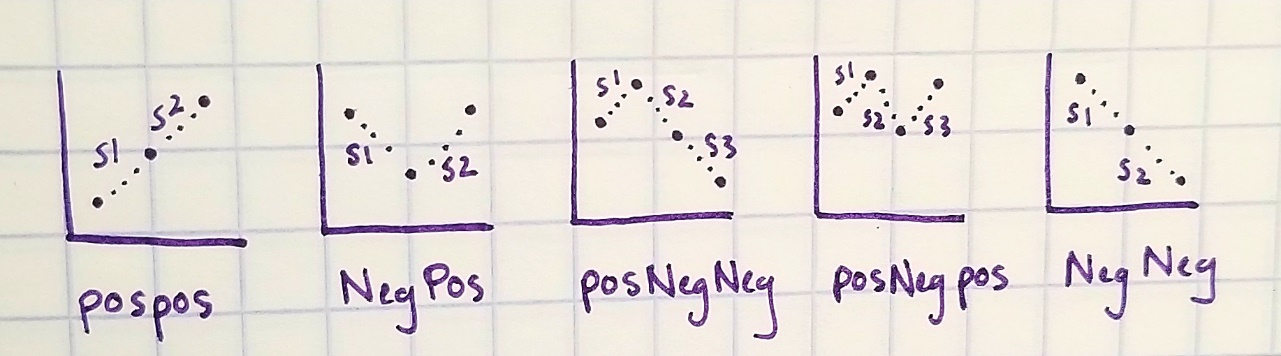 S1 S2
pospos
S1 S2
NegPos
S1 S2 S3
posNegNeg
S1 S2 S3
posNegpos
S1 S2
Neg Neg